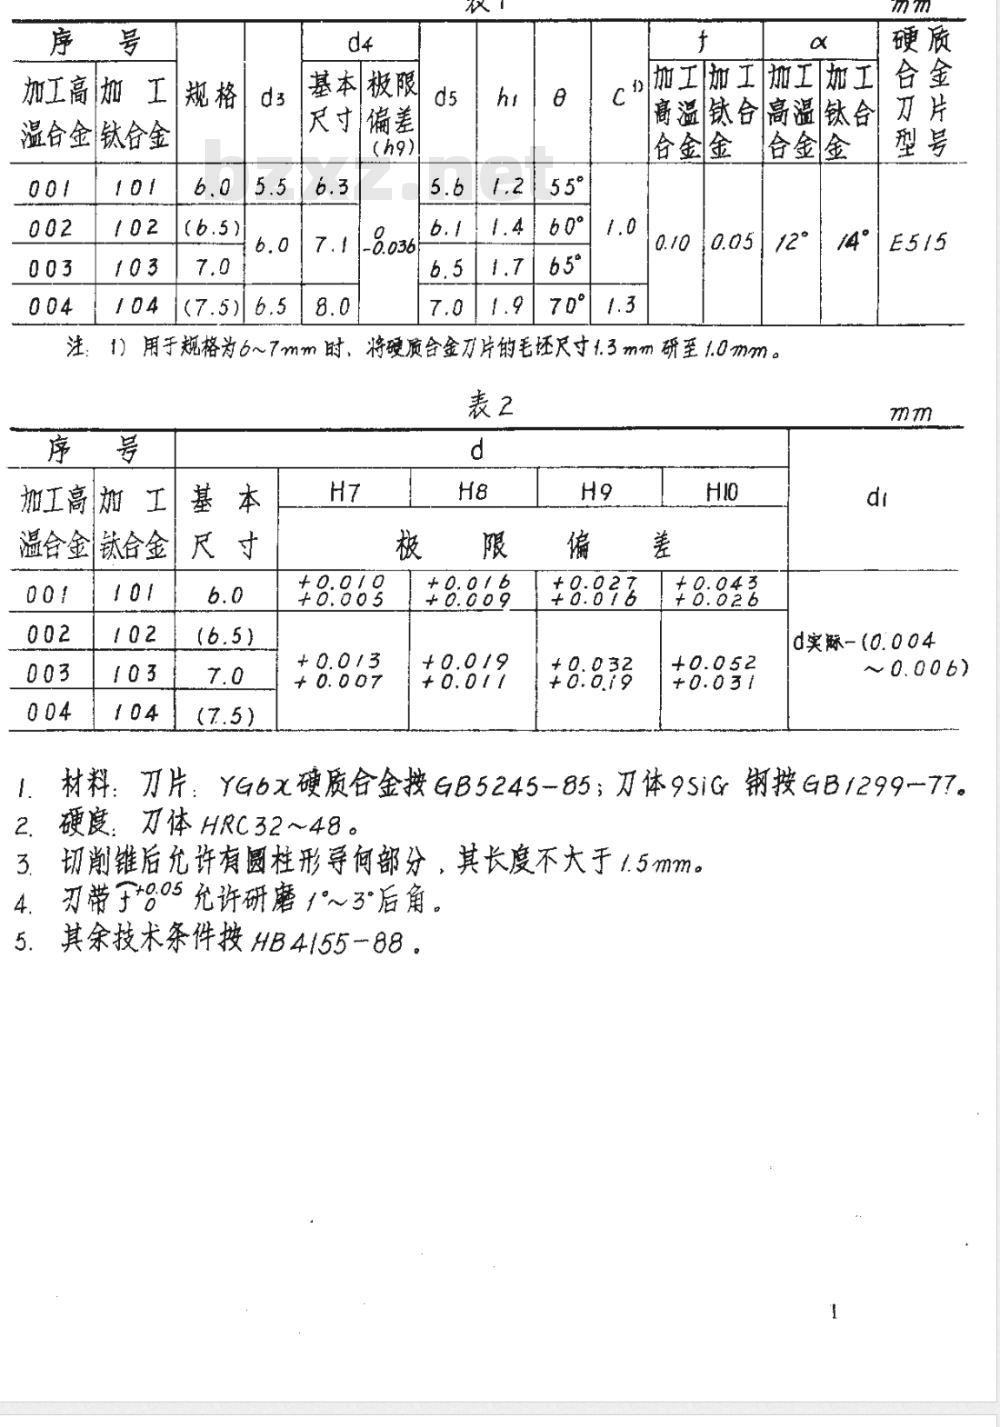 表1
mm
序 号 规格 d3 d4 d5 h1 θ C1) f α 硬质合金刀片型号
加工高温合金 加工钛合金 基本尺寸 极限偏差(h9) 加工高温合金 加工钛合金 加工高温合金 加工钛合金
001 101 6.0 5.5 6.3 0 -0.036 5.6 1.2 55° 1.0 0.10 0.05 12° 14° E515
002 102 (6.5) 6.0 7.1 6.1 1.4 60°
003 103 7.0 6.5 1.7 65°
004 104 (7.5) 6.5 8.0 7.0 1.9 70° 1.3
bzxz.net
注: 1) 用于规格为6~7mm时、将硬质合金刀片的毛坯尺寸1.3mm研至1.0mm。
表2
mm
序 号 d d1
加工高温合金 加工钛合金 基本尺寸 H7 H8 H9 H10
极 限 偏 差
001 101 6.0 +0.010 +0.005 +0.016 +0.009 +0.027 +0.016 +0.043 +0.026
002 102 (6.5) +0.013 +0.007 +0.019 +0.011 +0.032 +0.019 +0.052 +0.031 d实际-(0.004~0.006)
003 103 7.0
004 104 (7.5)
1. 材料: 刀片: YG6x硬质合金按GB5245-85; 刀体9SiCr 钢按GB1299-77。
2. 硬度: 刀体HRC32~48。
3. 切削锥后允许有圆柱形导向部分,其长度不大于1.5mm。
4. 刃带f+0.05 0允许研磨1°~3°后角。
5. 其余技术条件按HB4155-88.
1